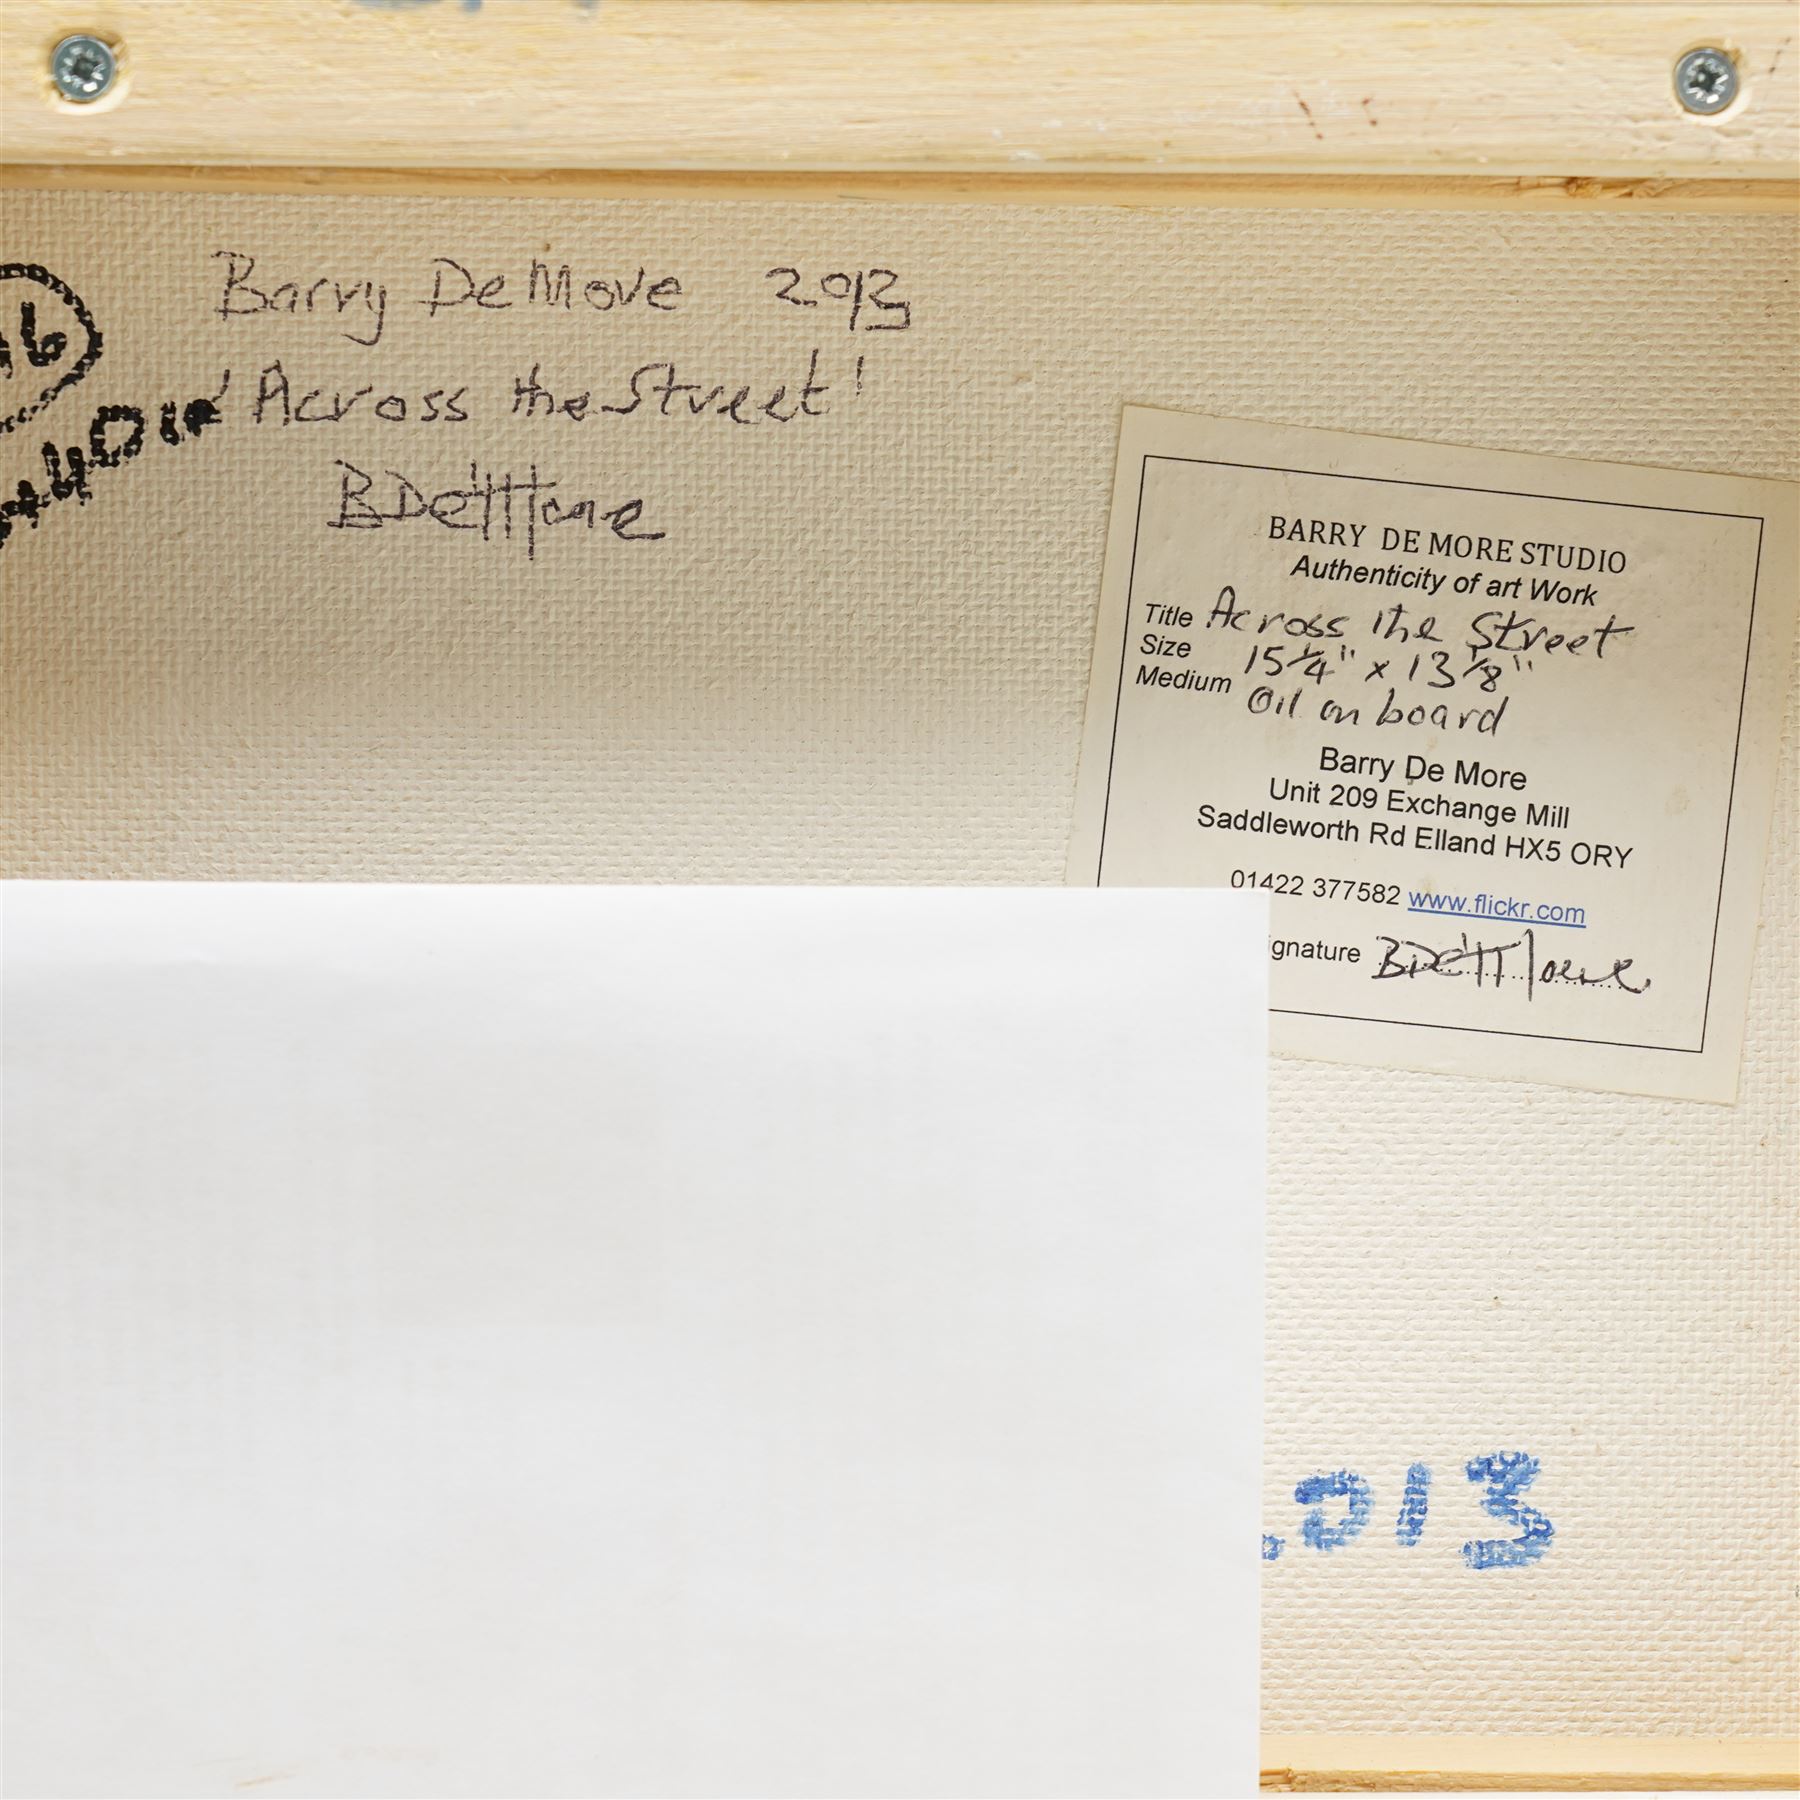 Barry De More 2013
'Across the Street'
BDeMore
BARRY DE MORE STUDIO
Authenticity of art Work
Title Across the Street
Size 15 1/4" x 13 1/8"
Medium Oil on board
Barry De More
Unit 209 Exchange Mill
Saddleworth Rd Elland HX5 ORY
01422 377582 www.flickr.com
ignature BDeMore
013